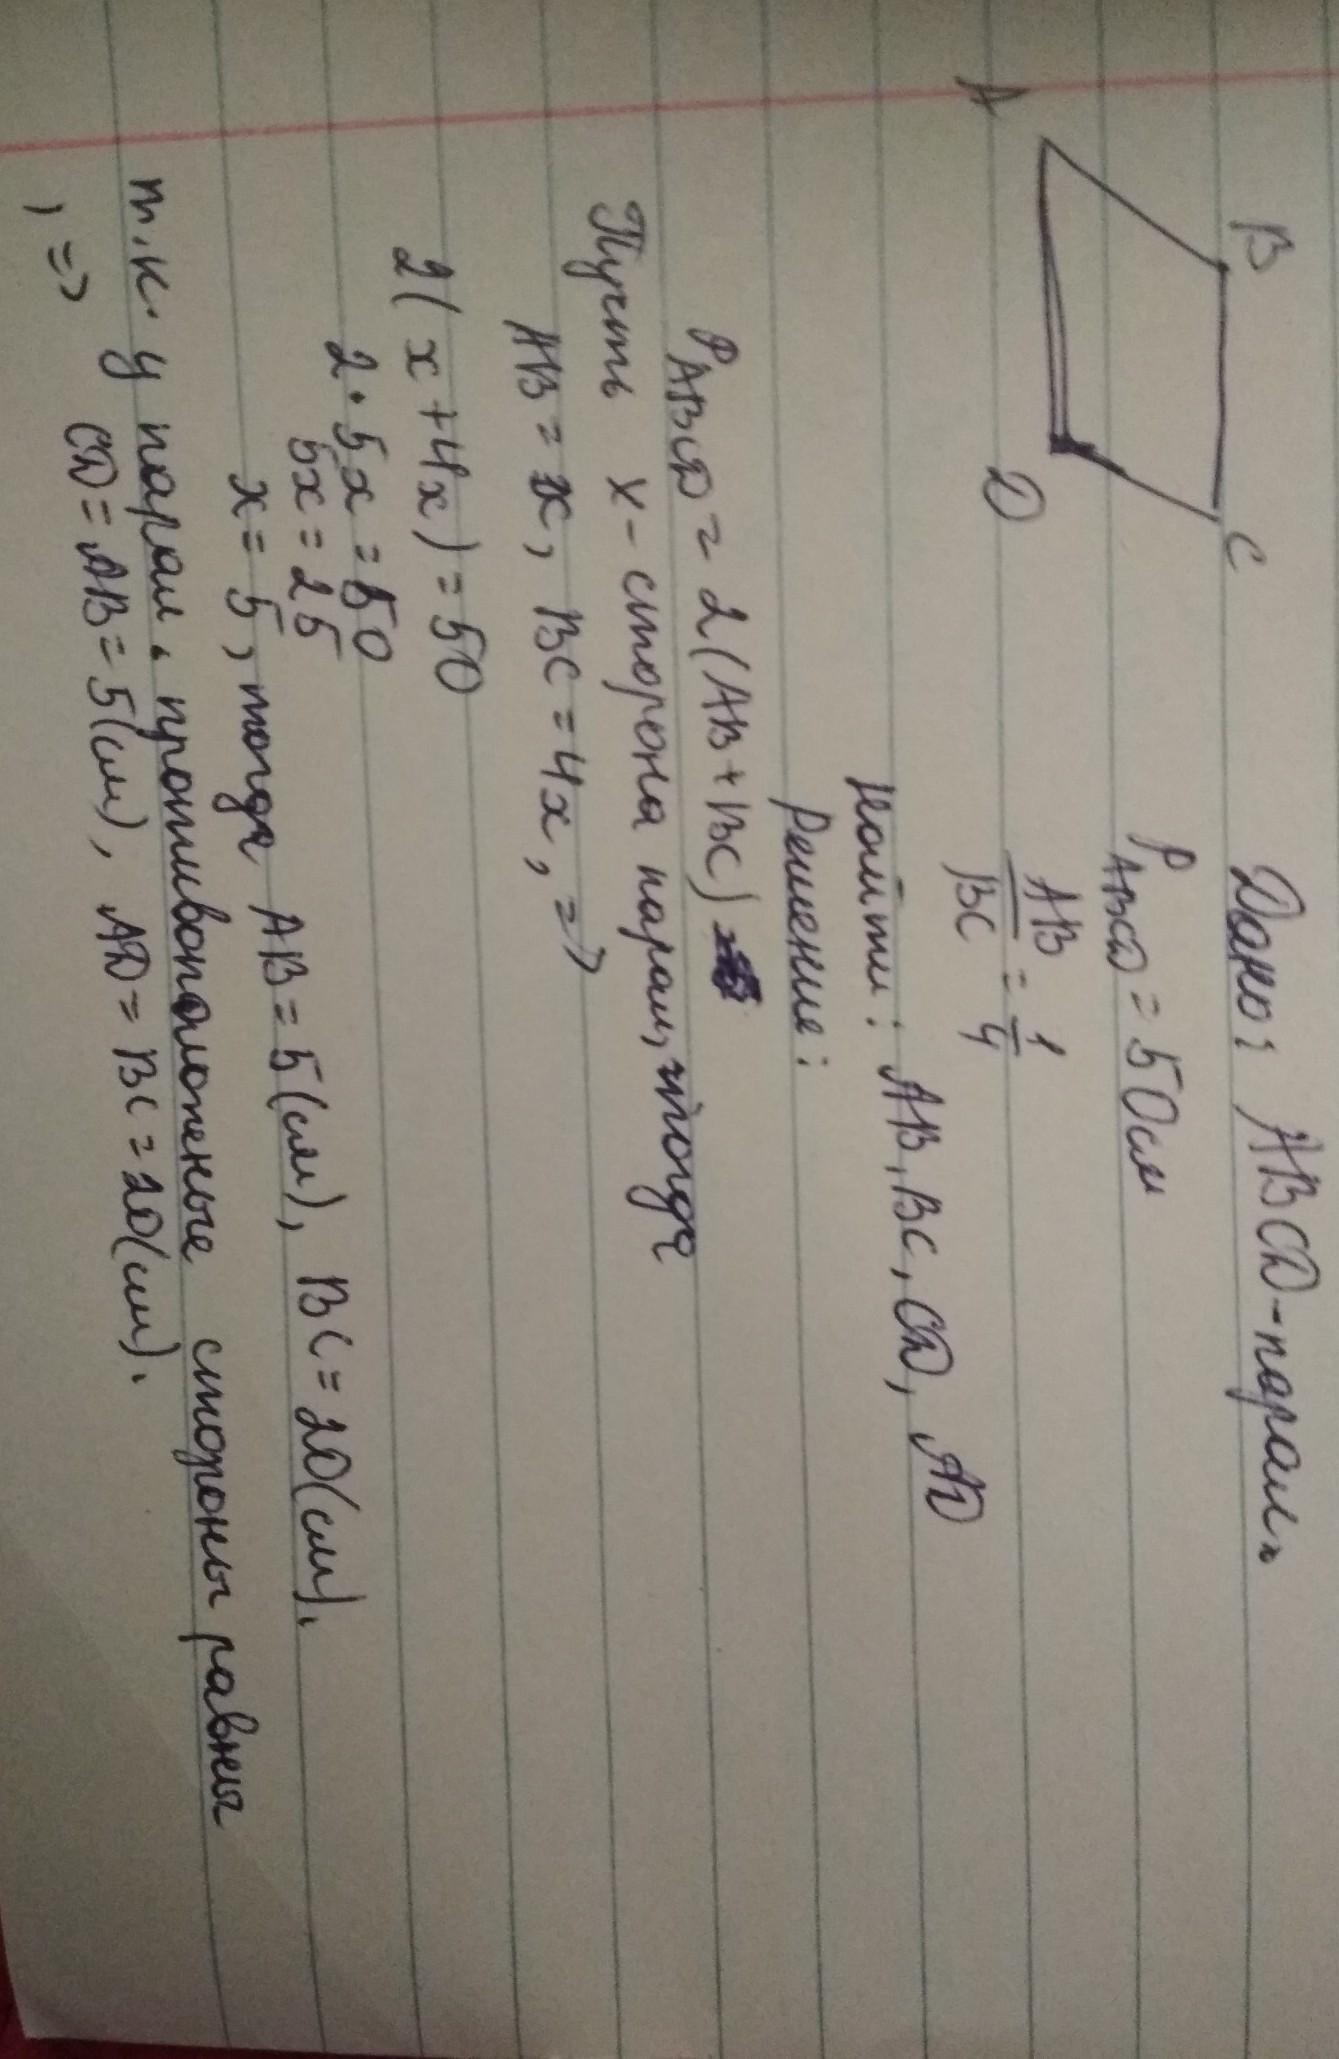 B
C
A
D
Дано: ABCD-парал.
P ABCD = 50см
AB/BC = 1/4
Найти: AB, BC, CD, AD
Решение:
P ABCD = 2(AB+BC)
Пусть x-сторона парал, тогда
AB = x, BC = 4x, =>
2(x+4x) = 50
2·5x = 50
5x = 25
x = 5, тогда AB = 5(см), BC = 20(см).
т.к. у парал. противоположные стороны равны
, => CD = AB = 5(см), AD = BC = 20(см).